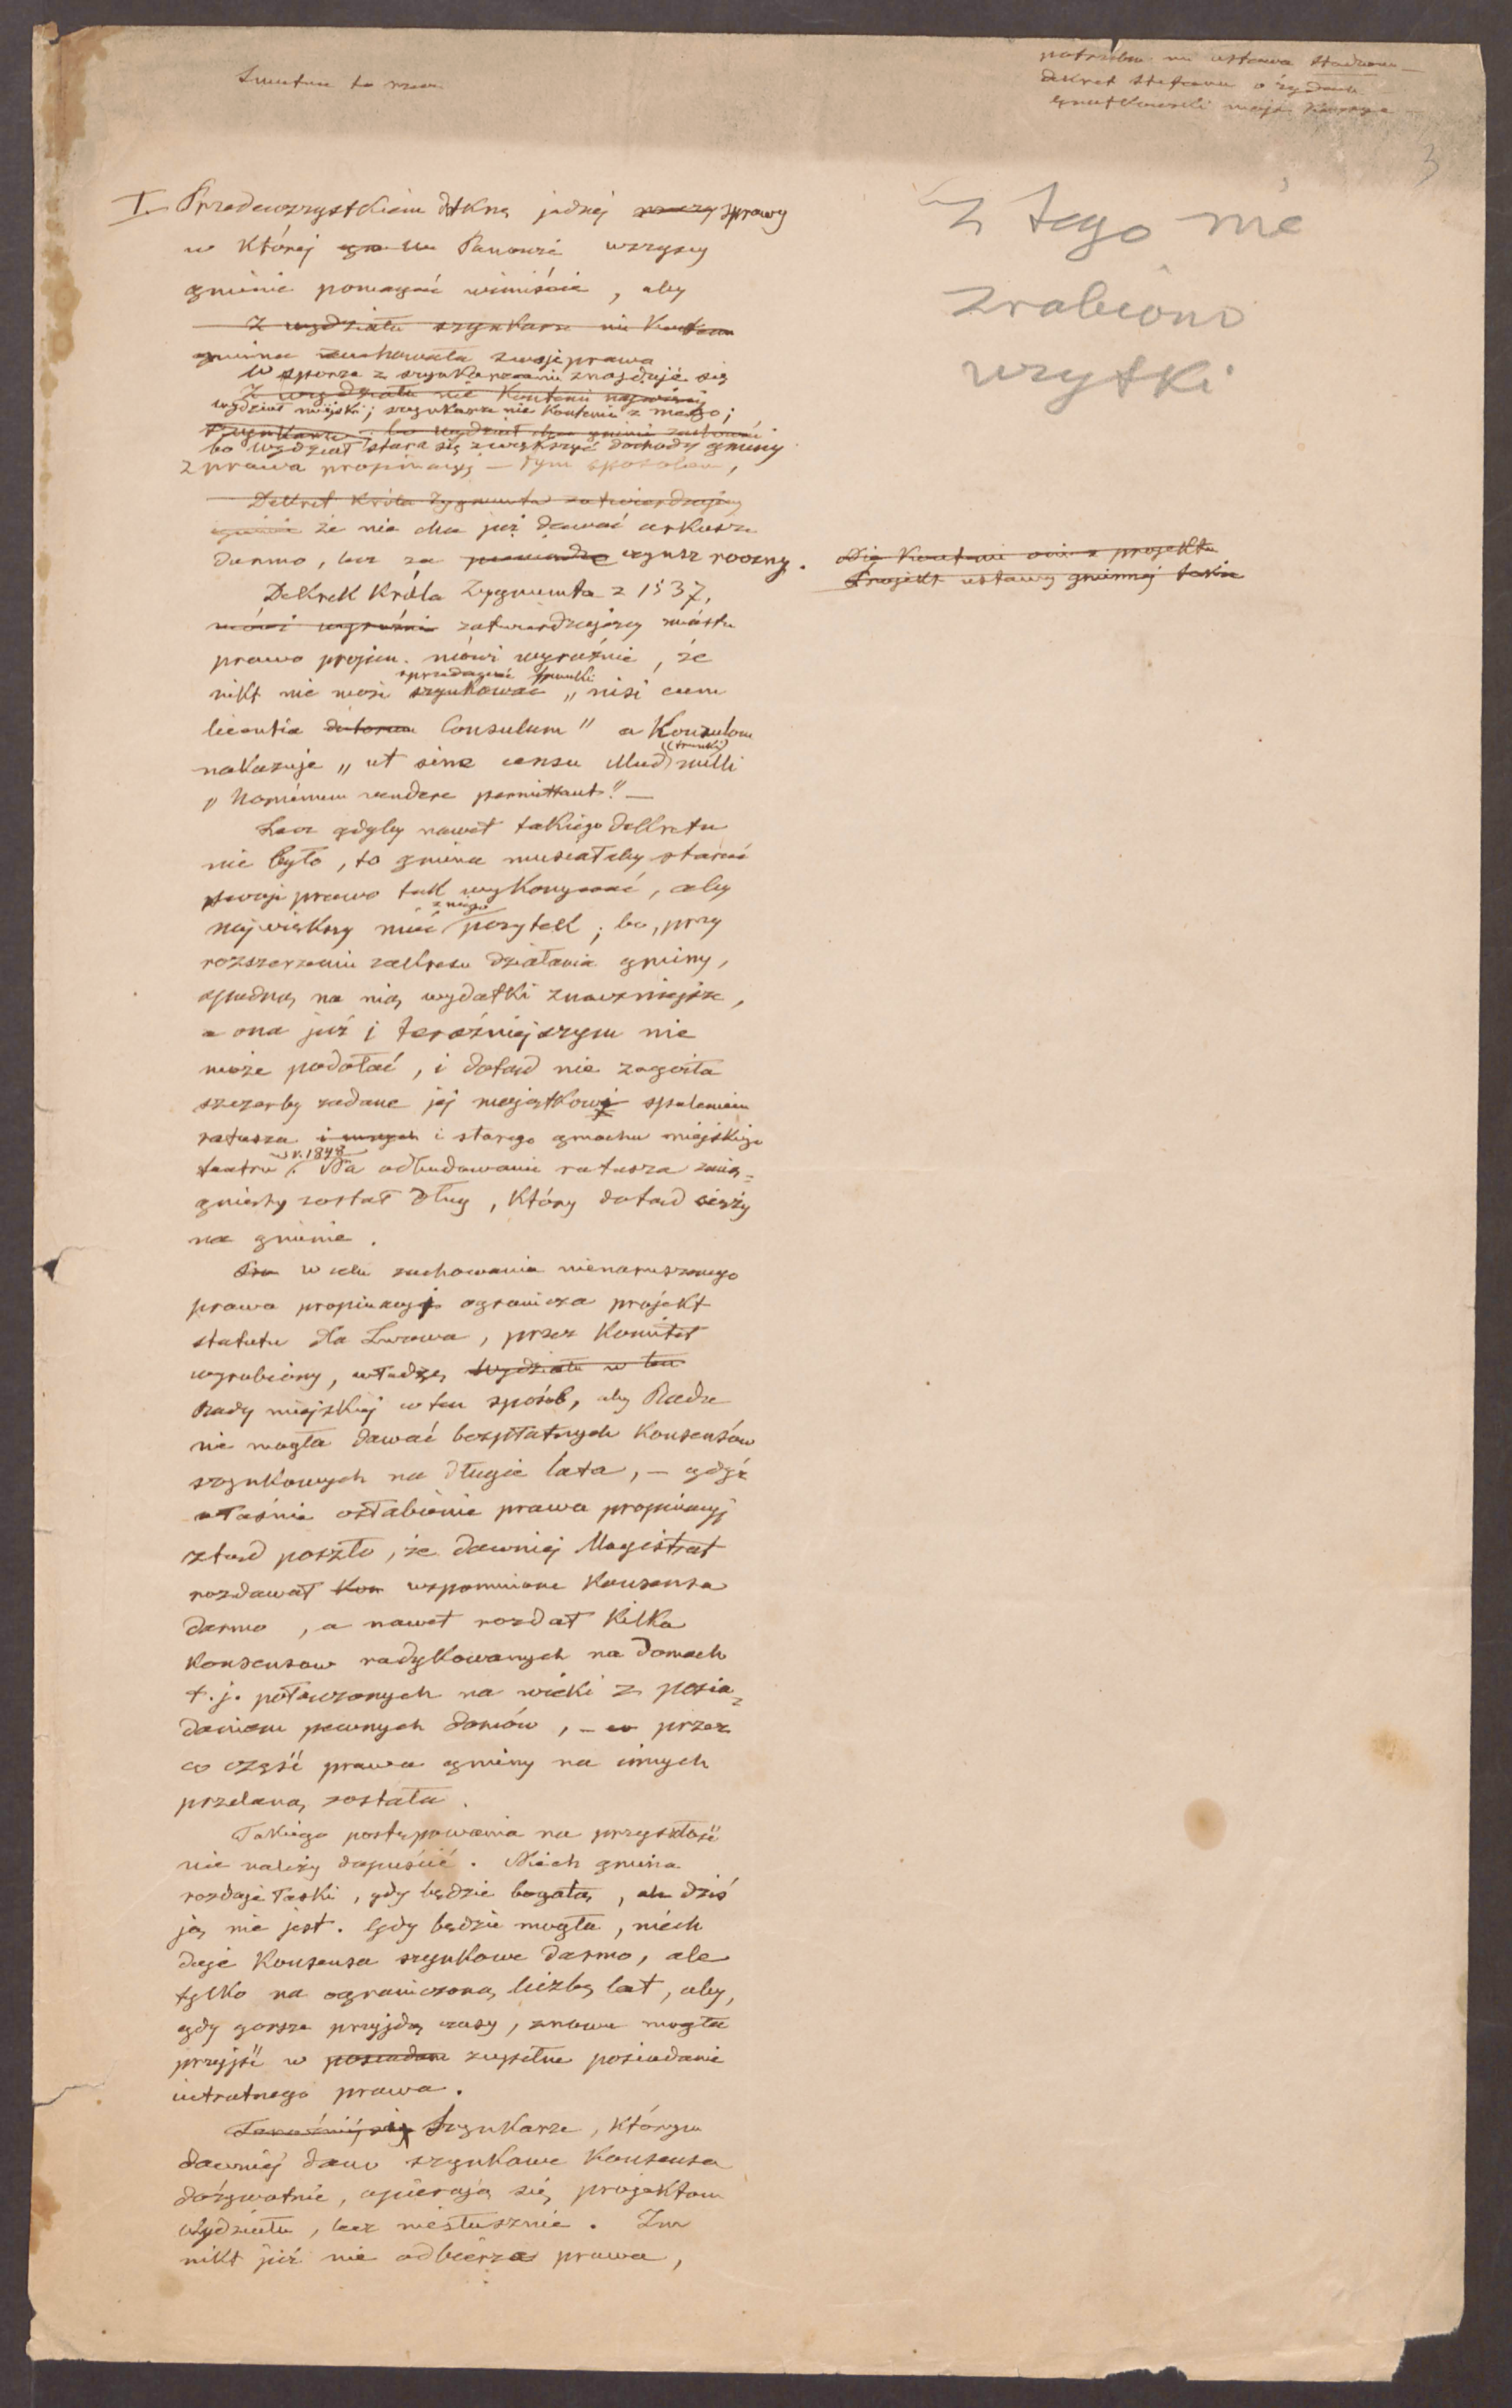 Smutna to rzecz
potrzebna mi ustawa Stadiona —
dekret Stefana o żydach
3
I. Przedewszystkiem dotknę jednej rzeczy sprawy
w której Panowie wszyscy
gminie pomagać winiście, aby
z wydziału szynkarze nie kontenci
gmina zachowała swoje prawa
W sporze z szynkarzami znajduje się
z wydziału nie kontenci najwięcej
wydział miejski; szynkarze nie kontenci z niego;
szynkarze, bo wydział chce gminie zachować
bo wydział stara się zwiększyć dochody gminy
z prawa propinacyj — tym sposobem,
Dekret króla Zygmunta zatwierdzający
że nie chce już dawać arkusze
darmo, lecz za pieniądze czynsz roczny.
Dekret króla Zygmunta z 1537,
mówi wyraźnie zatwierdzający miastu
prawo propin. mówi wyraźnie, że
sprzedawać trunki
nikt nie może szynkować „nisi cum
licentia Consulum" a Konsulom
(trunki)
nakazuje „ut sine censu nulli
„hominum vendere permittant." —
Lecz gdyby nawet takiego dekretu
nie było, to gmina musiałaby starać
swoje prawo tak wykonywać, aby
z niego
największy mieć pożytek; bo, przy
rozszerzeniu zakresu działania gminy,
spadną na nią wydatki znaczniejsze,
a ona już i teraźniejszym nie
może podołać, i dotąd nie zagoiła
szczerby zadane jej majątkowi spaleniem
ratusza i innych i starego gmachu miejskiego
w r. 1848
teatru. Na odbudowanie ratusza zacią=
gnięty został dług, który dotąd cięży
na gminie.
W celu zachowania nienaruszonego
prawa propinacyj ogranicza projekt
statutu dla Lwowa, przez Komitet
wyrobiony, władzę Wydziału w ten
Rady miejskiej w ten sposób, aby Rada
nie mogła dawać bezpłatnych konsensów
szynkowych na długie lata, — gdyż
właśnie osłabienie prawa propinacyj
ztąd poszło, że dawniej Magistrat
rozdawał kon wspomnione konsensa
darmo, a nawet rozdał kilka
konsensow radykowanych na domach
t. j. połączonych na wieki z posia=
daniem pewnych domów, — przez
co część prawa gminy na innych
przelaną została.
Takiego postępowania na przyszłość
nie należy dopuścić. Niech gmina
rozdaje łaski, gdy będzie bogatą, ale dziś
ją nie jest. Gdy będzie mogła, niech
daje konsensa szynkowe darmo, ale
tylko na ograniczoną liczbę lat, aby,
gdy gorsze przyjdą czasy, znowu mogła
przyjść w posiadanie zupełne posiadanie
intratnego prawa.
Szynkarze, którym
dawniej dano szynkowe konsensa
dożywotnie, opierają się projektom
Wydziału, lecz niesłusznie. Im
nikt już nie odbierze prawa,
z tego nie
zrobiono
wzytki
Nie kontenci oni z projektu
Projekt ustawy gminnej także